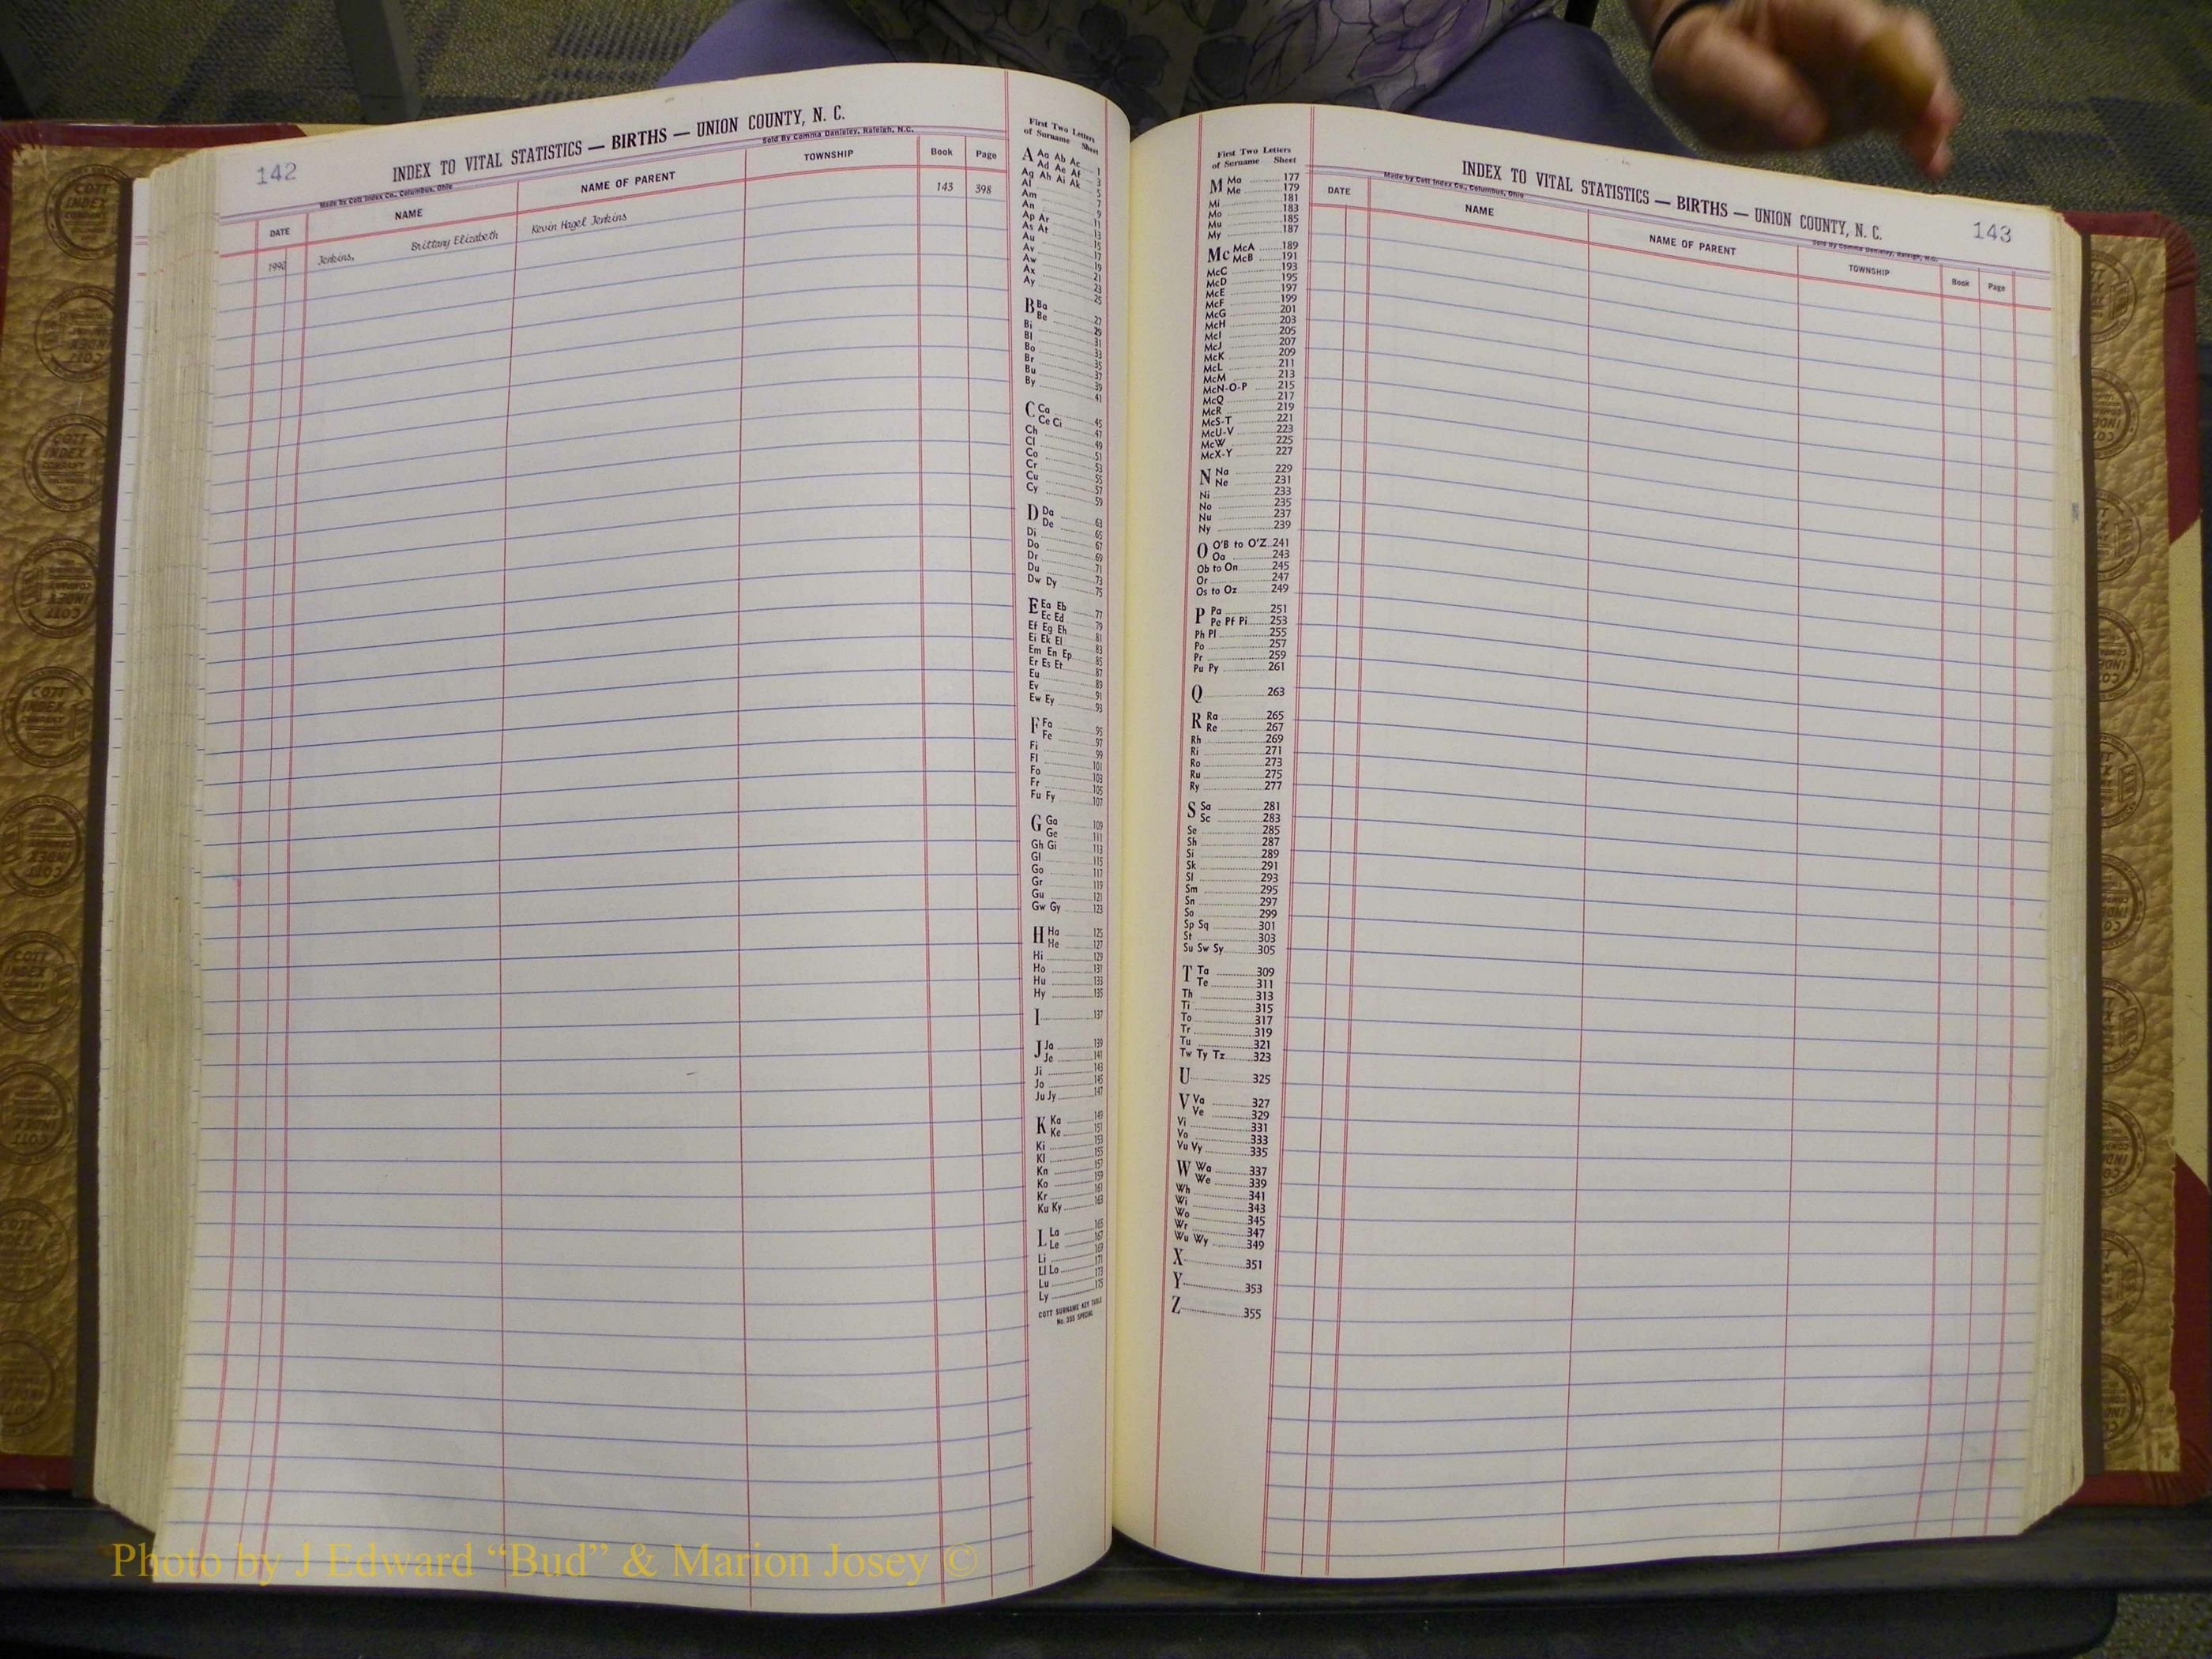 142
INDEX TO VITAL STATISTICS — BIRTHS — UNION COUNTY, N. C.
Made by Cott Index Co., Columbus, Ohio
Sold By Comma Danieley, Raleigh, N.C.
DATE NAME NAME OF PARENT TOWNSHIP Book Page
1990 Jenkins, Brittany Elizabeth Kevin Hagel Jenkins 143 398
First Two Letters
of Surname Sheet
A Aa Ab Ac 1
Ad Ae Af 3
Ag Ah Ai Ak 5
Al 7
Am 9
An 11
Ap Ar 13
As At 15
Au 17
Av 19
Aw 21
Ax 23
Ay 25
B Ba 27
Be 29
Bi 31
Bl 33
Bo 35
Br 37
Bu 39
By 41
C Ca 45
Ce Ci 47
Ch 49
Cl 51
Co 53
Cr 55
Cu 57
Cy 59
D Da 63
De 65
Di 67
Do 69
Dr 71
Du 73
Dw Dy 75
E Ea Eb 77
Ec Ed 79
Ef Eg Eh 81
Ei Ek El 83
Em En Ep 85
Er Es Et 87
Eu 89
Ev 91
Ew Ey 93
F Fa 95
Fe 97
Fi 99
Fl 101
Fo 103
Fr 105
Fu Fy 107
G Ga 109
Ge 111
Gh Gi 113
Gl 115
Go 117
Gr 119
Gu 121
Gw Gy 123
H Ha 125
He 127
Hi 129
Ho 131
Hu 133
Hy 135
I 137
J Ja 139
Je 141
Ji 143
Jo 145
Ju Jy 147
K Ka 149
Ke 151
Ki 153
Kl 155
Kn 157
Ko 159
Kr 161
Ku Ky 163
L La 165
Le 167
Li 169
Ll Lo 171
Lu 173
Ly 175
COTT SURNAME KEY TABLE
No. 355 SPECIAL
First Two Letters
of Surname Sheet
M Ma 177
Me 179
Mi 181
Mo 183
Mu 185
My 187
Mc McA 189
McB 191
McC 193
McD 195
McE 197
McF 199
McG 201
McH 203
McI 205
McJ 207
McK 209
McL 211
McM 213
McN-O-P 215
McQ 217
McR 219
McS-T 221
McU-V 223
McW 225
McX-Y 227
N Na 229
Ne 231
Ni 233
No 235
Nu 237
Ny 239
O O'B to O'Z 241
Oa 243
Ob to On 245
Or 247
Os to Oz 249
P Pa 251
Pe Pf Pi 253
Ph Pl 255
Po 257
Pr 259
Pu Py 261
Q 263
R Ra 265
Re 267
Rh 269
Ri 271
Ro 273
Ru 275
Ry 277
S Sa 281
Sc 283
Se 285
Sh 287
Si 289
Sk 291
Sl 293
Sm 295
Sn 297
So 299
Sp Sq 301
St 303
Su Sw Sy 305
T Ta 309
Te 311
Th 313
Ti 315
To 317
Tr 319
Tu 321
Tw Ty Tz 323
U 325
V Va 327
Ve 329
Vi 331
Vo 333
Vu Vy 335
W Wa 337
We 339
Wh 341
Wi 343
Wo 345
Wr 347
Wu Wy 349
X 351
Y 353
Z 355
INDEX TO VITAL STATISTICS — BIRTHS — UNION COUNTY, N. C.
143
Made by Cott Index Co., Columbus, Ohio
Sold By Comma Danieley, Raleigh, N.C.
DATE NAME NAME OF PARENT TOWNSHIP Book Page
Photo by J Edward “Bud” & Marion Josey ©